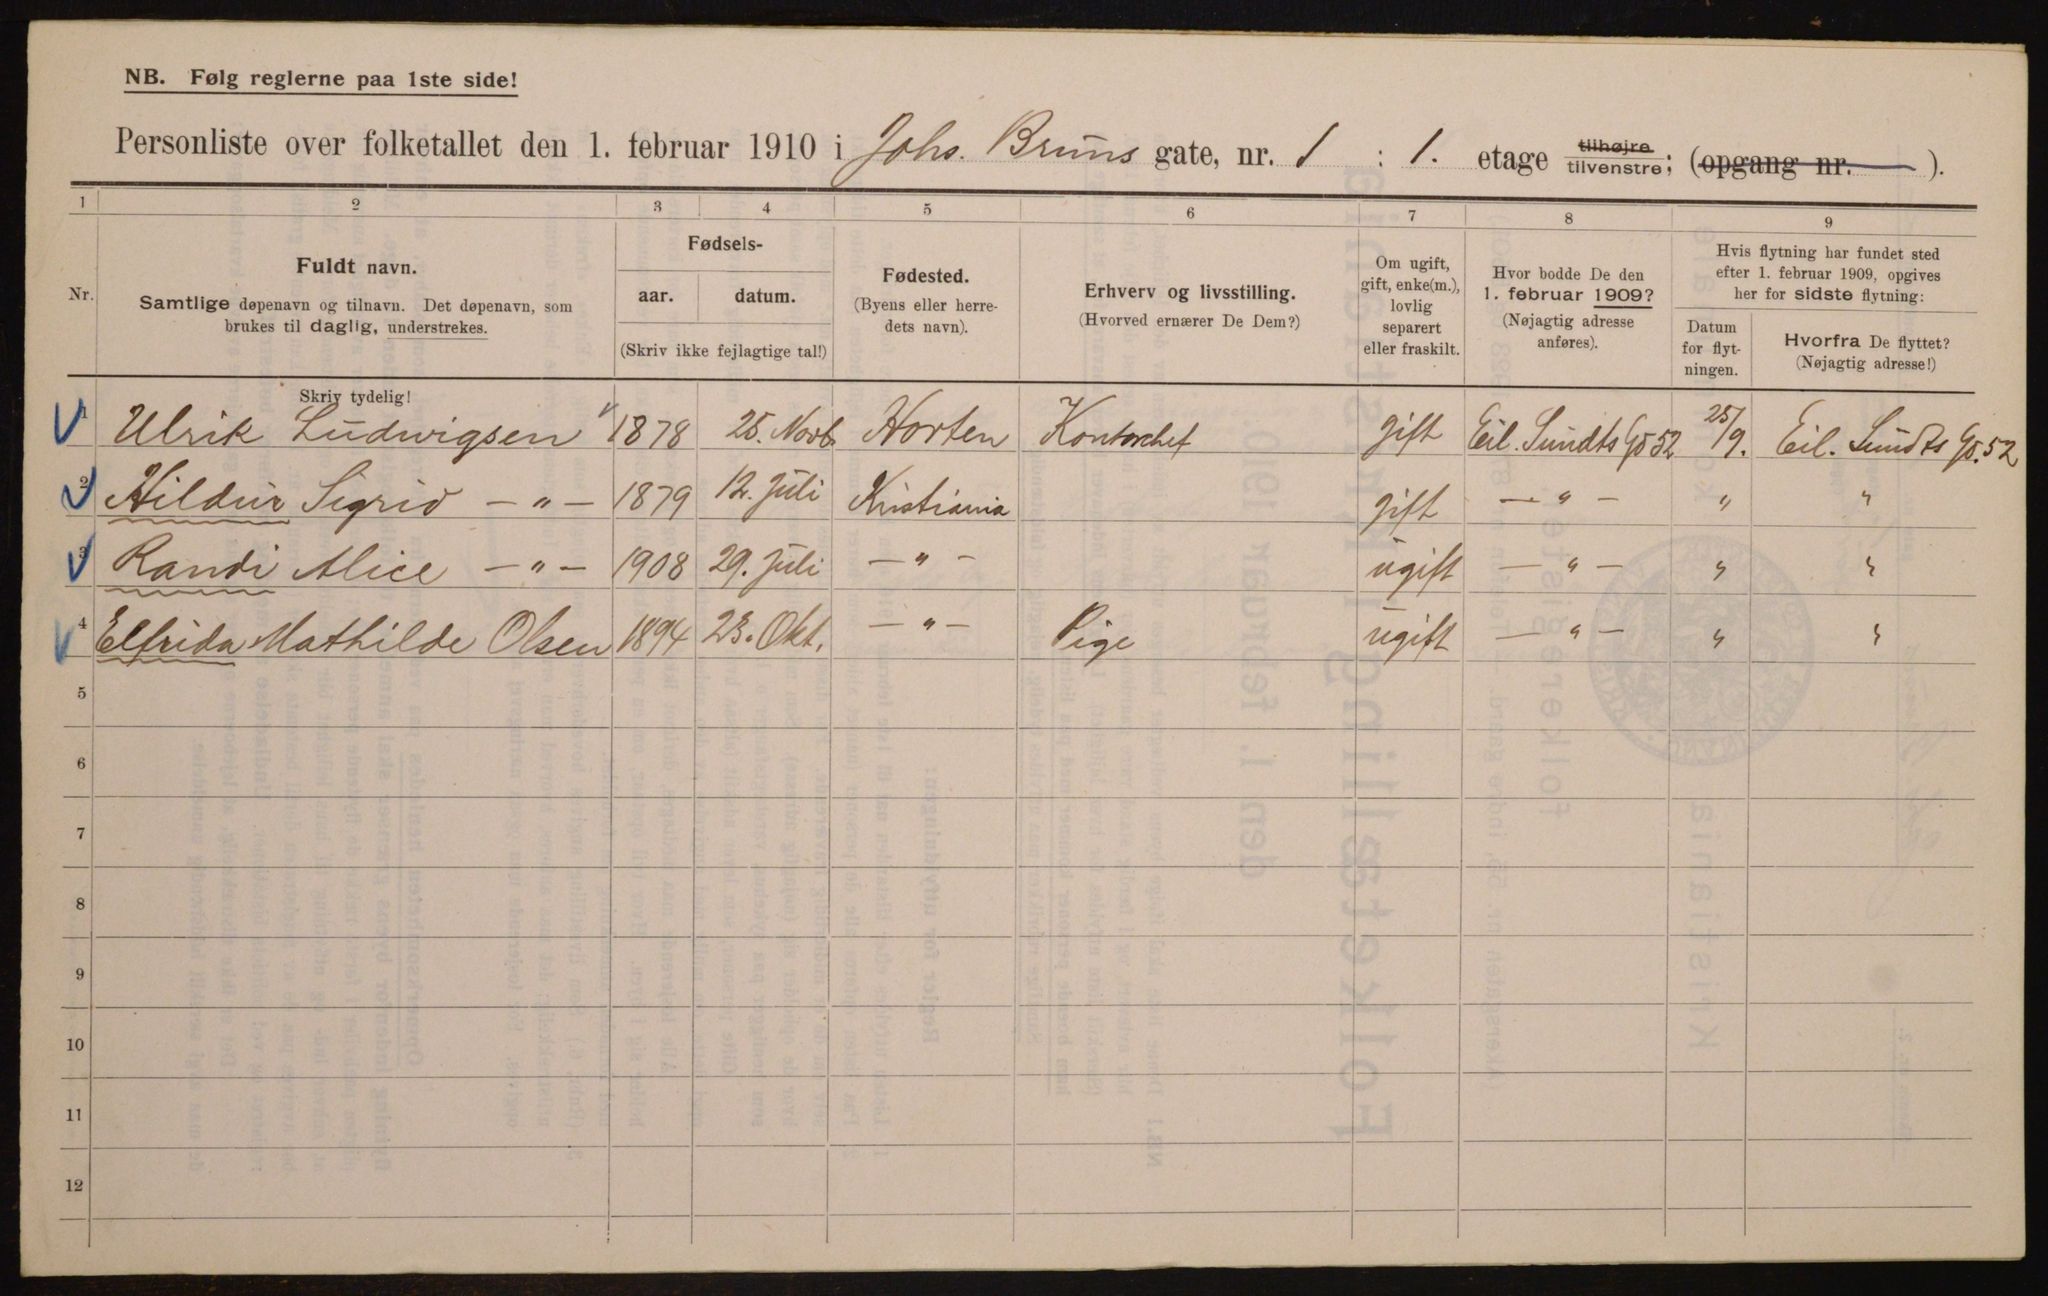 NB. Følg reglerne paa 1ste side!
Personliste over folketallet den 1. februar 1910 i Johs. Bruns gate, nr. 1 : 1. etage tilhøjre tilvenstre; (opgang nr. ).
1 2 3 4 5 6 7 8 9
Nr.
Fuldt navn.
Samtlige døpenavn og tilnavn. Det døpenavn, som
brukes til daglig, understrekes.
Fødsels-
aar. datum.
(Skriv ikke fejlagtige tal!)
Fødested.
(Byens eller herre-
dets navn).
Erhverv og livsstilling.
(Hvorved ernærer De Dem?)
Om ugift,
gift, enke(m.),
lovlig
separert
eller fraskilt.
Hvor bodde De den
1. februar 1909?
(Nøjagtig adresse
anføres).
Hvis flytning har fundet sted
efter 1. februar 1909, opgives
her for sidste flytning:
Datum
for flyt-
ningen.
Hvorfra De flyttet?
(Nøjagtig adresse!)
Skriv tydelig!
1 Ulrik Ludwigsen 1878 25. Novb. Horten Kontorchef gift Eil. Sundts Gd 52 25/9. Eil. Sundts Gd. 52
2 Hildur Sigrid — " — 1879 12. Juli Kristiania gift — " — " "
3 Randi Alice — " — 1908 29. Juli — " — ugift — " — " "
4 Elfrida Mathilde Olsen 1894 23. Okt. — " — Pige ugift — " — " "
5
6
7
8
9
10
11
12